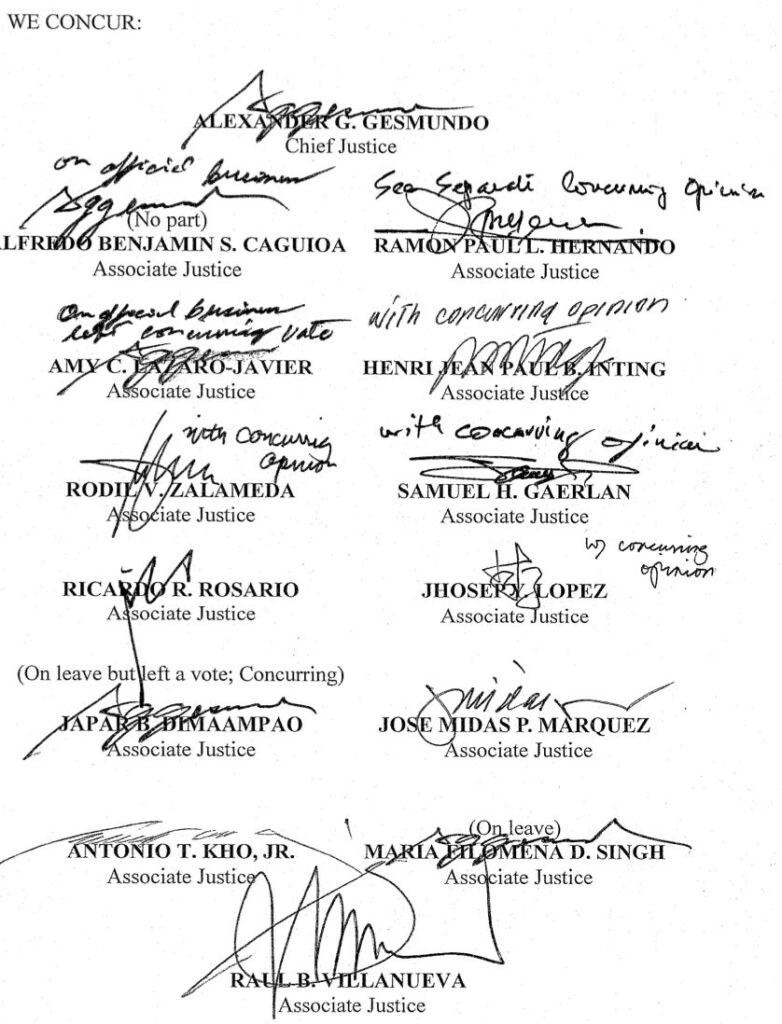 WE CONCUR:
ALEXANDER G. GESMUNDO
Chief Justice
on official business
(No part)
LFREDO BENJAMIN S. CAGUIOA
Associate Justice
See Separate Concurring Opinion
RAMON PAUL L. HERNANDO
Associate Justice
On official business
left concurring vote
AMY C. LAZARO-JAVIER
Associate Justice
with concurring opinion
HENRI JEAN PAUL B. INTING
Associate Justice
with concurring
opinion
RODIL V. ZALAMEDA
Associate Justice
with concurring opinion
SAMUEL H. GAERLAN
Associate Justice
RICARDO R. ROSARIO
Associate Justice
w/ concurring
opinion
JHOSEP Y. LOPEZ
Associate Justice
(On leave but left a vote; Concurring)
JAPAR B. DIMAAMPAO
Associate Justice
JOSE MIDAS P. MARQUEZ
Associate Justice
ANTONIO T. KHO, JR.
Associate Justice
(On leave)
MARIA FILOMENA D. SINGH
Associate Justice
RAUL B. VILLANUEVA
Associate Justice